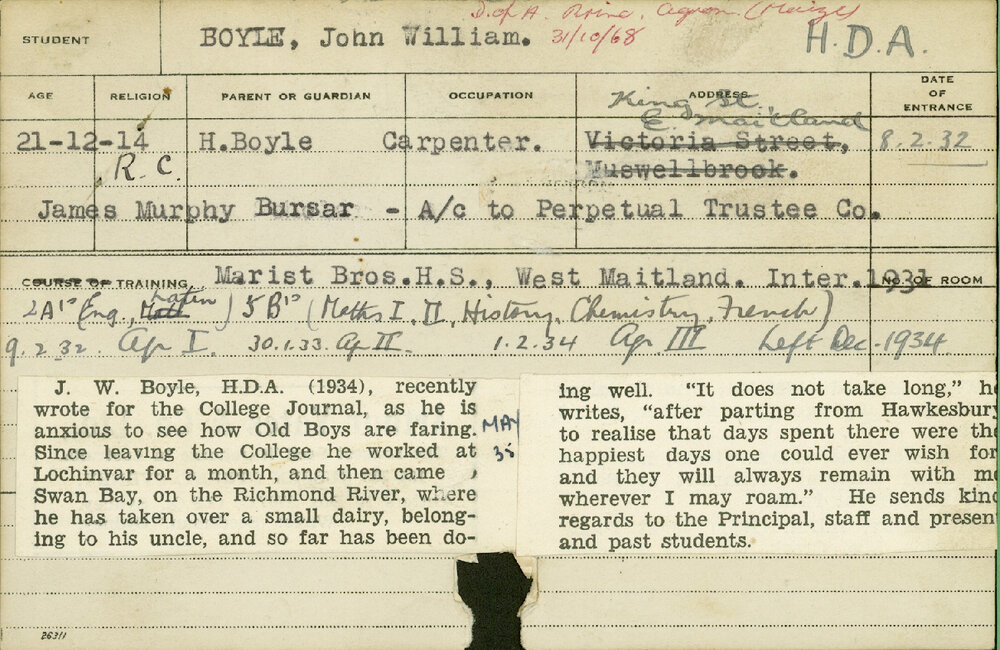 D. of A. Prin. Agron. (Maize)
STUDENT BOYLE, John William. 31/10/68 H.D.A.
AGE RELIGION PARENT OR GUARDIAN OCCUPATION ADDRESS DATE OF ENTRANCE
King St.
E. Maitland
21-12-14 H.Boyle Carpenter. Victoria Street, 8.2.32
R.C. Muswellbrook.
James Murphy Bursar - A/c to Perpetual Trustee Co.
COURSE OF TRAINING Marist Bros.H.S., West Maitland. Inter.1931 NO. OF ROOM
Latin
2A's (Eng., Math ) 5 B's (Maths I, II, History, Chemistry, French)
9.2.32. Ag I. 30.1.33. Ag II. 1.2.34 Ag III Left Dec. 1934.
J. W. Boyle, H.D.A. (1934), recently
wrote for the College Journal, as he is
anxious to see how Old Boys are faring.
Since leaving the College he worked at
Lochinvar for a month, and then came
Swan Bay, on the Richmond River, where
he has taken over a small dairy, belong-
ing to his uncle, and so far has been do-
MAY
35
ing well. "It does not take long," he
writes, "after parting from Hawkesbury
to realise that days spent there were the
happiest days one could ever wish for
and they will always remain with me
wherever I may roam." He sends kind
regards to the Principal, staff and present
and past students.
26311